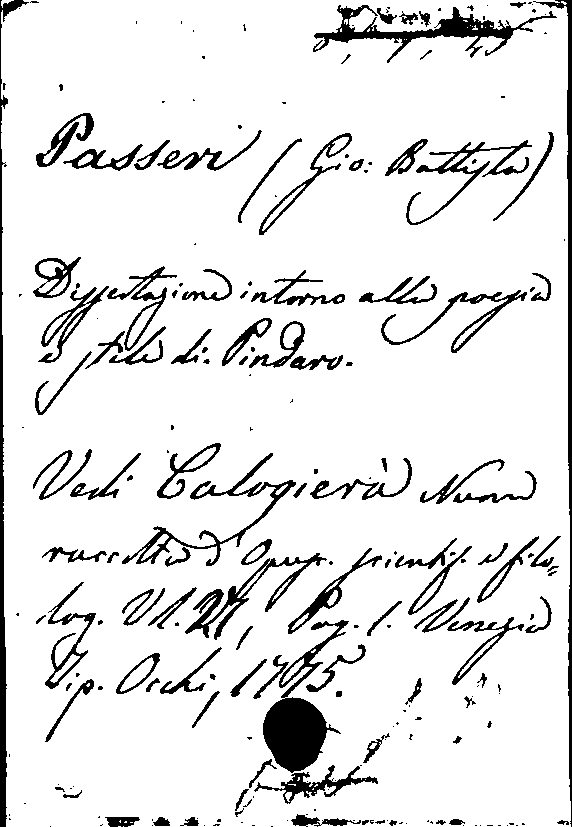 Passeri (Gio: Battista)
Dissertazione intorno alla poesia
e stile di Pindaro.
Vedi Calogierà Nuova
raccolta d'Opusc. scientif. e filo=
log. Vl. 27, Pag. 1. Venezia
Tip. Occhi, 1775.